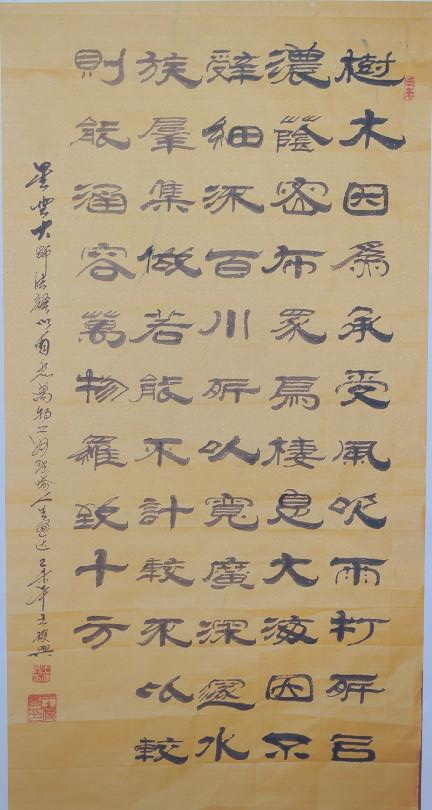 樹木因為承受風吹雨打所㠯
濃蔭密布眾鳥棲息大海因不
辭細流百川所以寬廣深邃水
族羣集做若能不計較不比較
則能涵容萬物羅致十方
星雲大師法語以自然萬物之喻人生乙未年